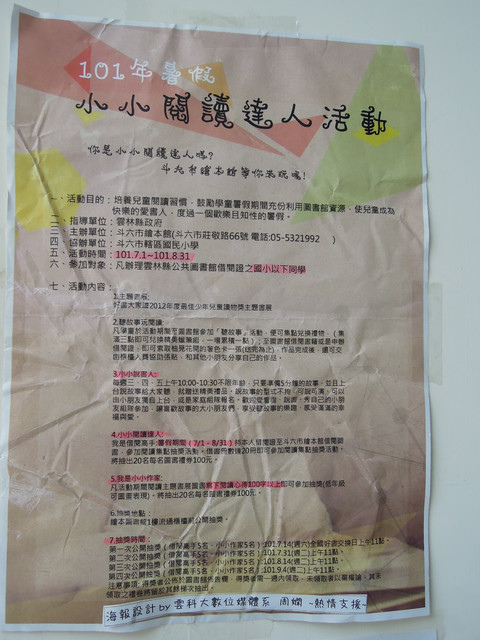 101年暑假
小小閱讀達人活動
你是小小閱讀達人嗎?
斗六市繪本館等你來玩嗎!
一、活動目的：培養兒童閱讀習慣，鼓勵學童暑假期間充份利用圖書館資源，使兒童成為
快樂的愛書人，度過一個歡樂且知性的暑假。
二、指導單位：雲林縣政府
三、主辦單位：斗六市繪本館(斗六市莊敬路66號 電話:05-5321992 )
四、協辦單位：斗六市轄區國民小學
五、活動時間：101.7.1~101.8.31
六、參加對象：凡辦理雲林縣公共圖書館借閱證之國小以下同學
七、活動內容：
1.主題書展:
好書大家讀2012年度最佳少年兒童讀物獎主題書展
2.聽故事玩閱讀:
凡學童於活動期間至圖書館參加「聽故事」活動，便可集點兌換禮物，(集
滿三點即可兌換精美蠟筆組，一場累積一點)；至圖書館借閱書籍或是申辦
借閱證，即可索取
創意
和其他小朋友分享自己的作品。
3.小小說書人:
每週三、四、五上午10:00-10:30不限年齡，只要準備5分鐘的故事，並且上
台說故事給大家聽，就贈送精美禮品。說故事的型式不拘，可說可演，可以
由小朋友獨自上台，或是家庭組隊報名，歡迎愛看書、說書、秀自己的小朋
友組隊參加，讓喜歡故事的大小朋友們，享受聽故事的樂趣，感受滿滿的幸
福與愛。
4.小小閱讀達人:
我是借閱高手:暑假期間（7/1 - 8/31）持本人借閱證至斗六市繪本館借閱圖
書，參加閱讀集點抽獎活動。借書冊數達20冊即可參加閱讀集點抽獎活動。
將抽出20名每名圖書禮券100元。
5.我是小小作家:
凡活動期間閱讀主題書展圖書寫下閱讀心得100字以上即可參加抽獎(低年級
可圖畫表現)。將抽出20名每名圖書禮券100元。
6.抽獎地點：
繪本圖書館1樓流通櫃檯前公開抽獎。
7.抽獎時間：
第一次公開抽獎（借閱高手5名、小小作家5名）:101.7.14(週六)全國好書交換日上午11點。
第二次公開抽獎（借閱高手5名、小小作家5名）:101.7.31(週二)上午11點。
第三次公開抽獎（借閱高手5名、小小作家5名）:101.8.14(週二)上午11點。
第四次公開抽獎（借閱高手5名、小小作家5名）:101.9.4(週二)上午11點。
注意事項：得獎者公佈於圖書館佈告欄，得獎者需一週內領取，未領取者以棄權論，其未
領取之禮券將留於其餘梯次抽出。
海報設計by雲科大數位媒體系 周嫻 ~熱情支援~